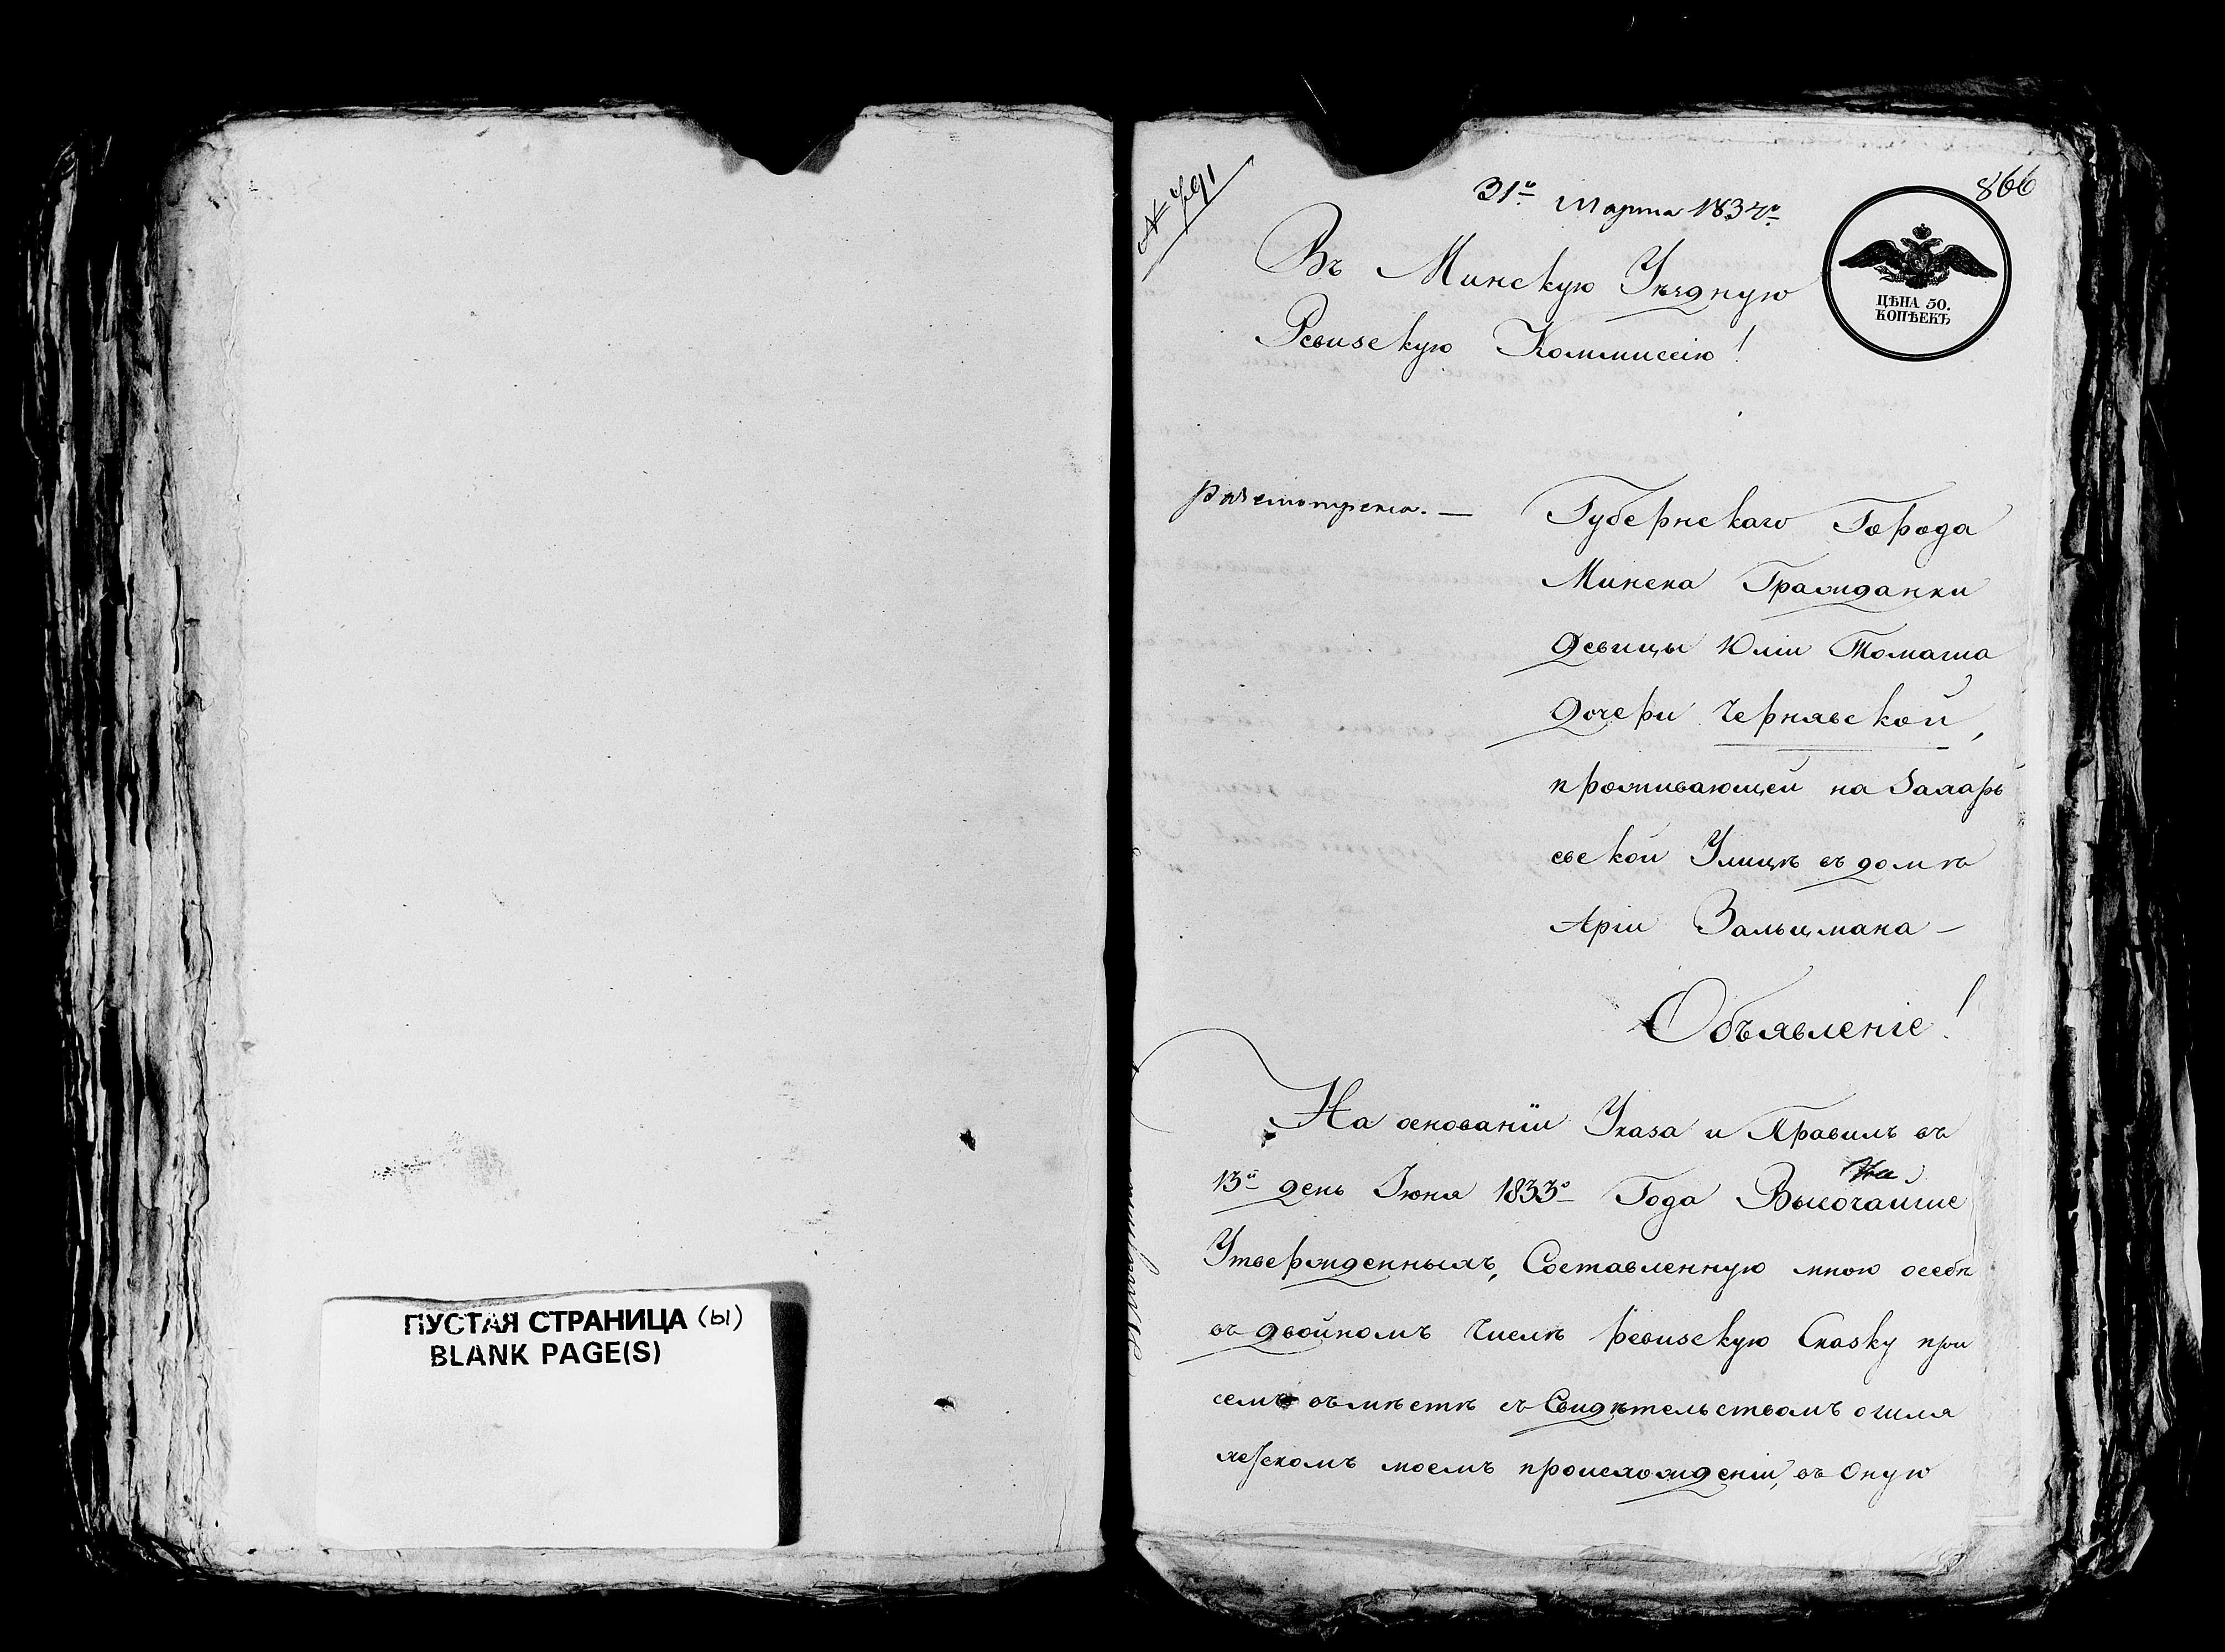 ПУСТАЯ СТРАНИЦА (ы)
BLANK PAGE(S)
№ 791
866
31го Марта 1834го
ЦѢНА 50.
КОПѢЕКЪ
Въ Минскую Уѣздную
Ревизскую Коммиссію!
Губернскаго Города
Минска Гражданки
девицы Юліи Томаша
дочери Чернявской,
проживающей на Захарь
евской Улицѣ въ домѣ
Аріи Зальцмана —
Объявленіе!
На основаніи Указа и Правилъ въ
13й день Іюня 1833го Года Высочайше
Утвержденныхъ, Составленную мною о себѣ
въ двойномъ Числѣ ревизскую Сказку при
семъ въмѣстѣ съ Свидѣтельствомъ о шля
хетскомъ моемъ происхожденіи, въ Оную